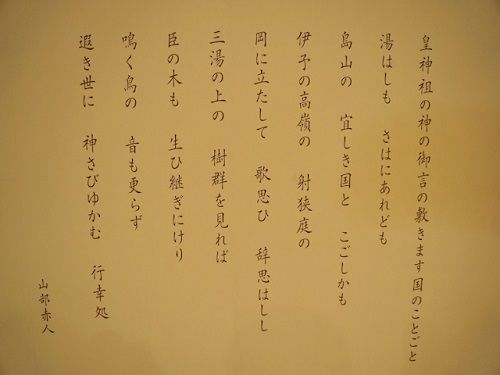 皇神祖の神の御言の敷きます国のことごと
湯はしも さはにあれども
島山の 宜しき国と こごしかも
伊予の高嶺の 射狭庭の
岡に立たして 歌思ひ 辞思はしし
三湯の上の 樹群を見れば
臣の木も 生ひ継ぎにけり
鳴く鳥の 音も更らず
遐き世に 神さびゆかむ 行幸処
山部赤人